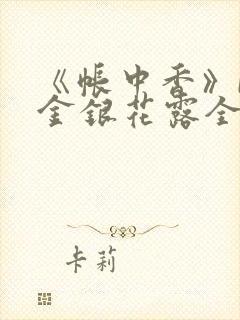 《帐中香》
金银花露全
卡莉